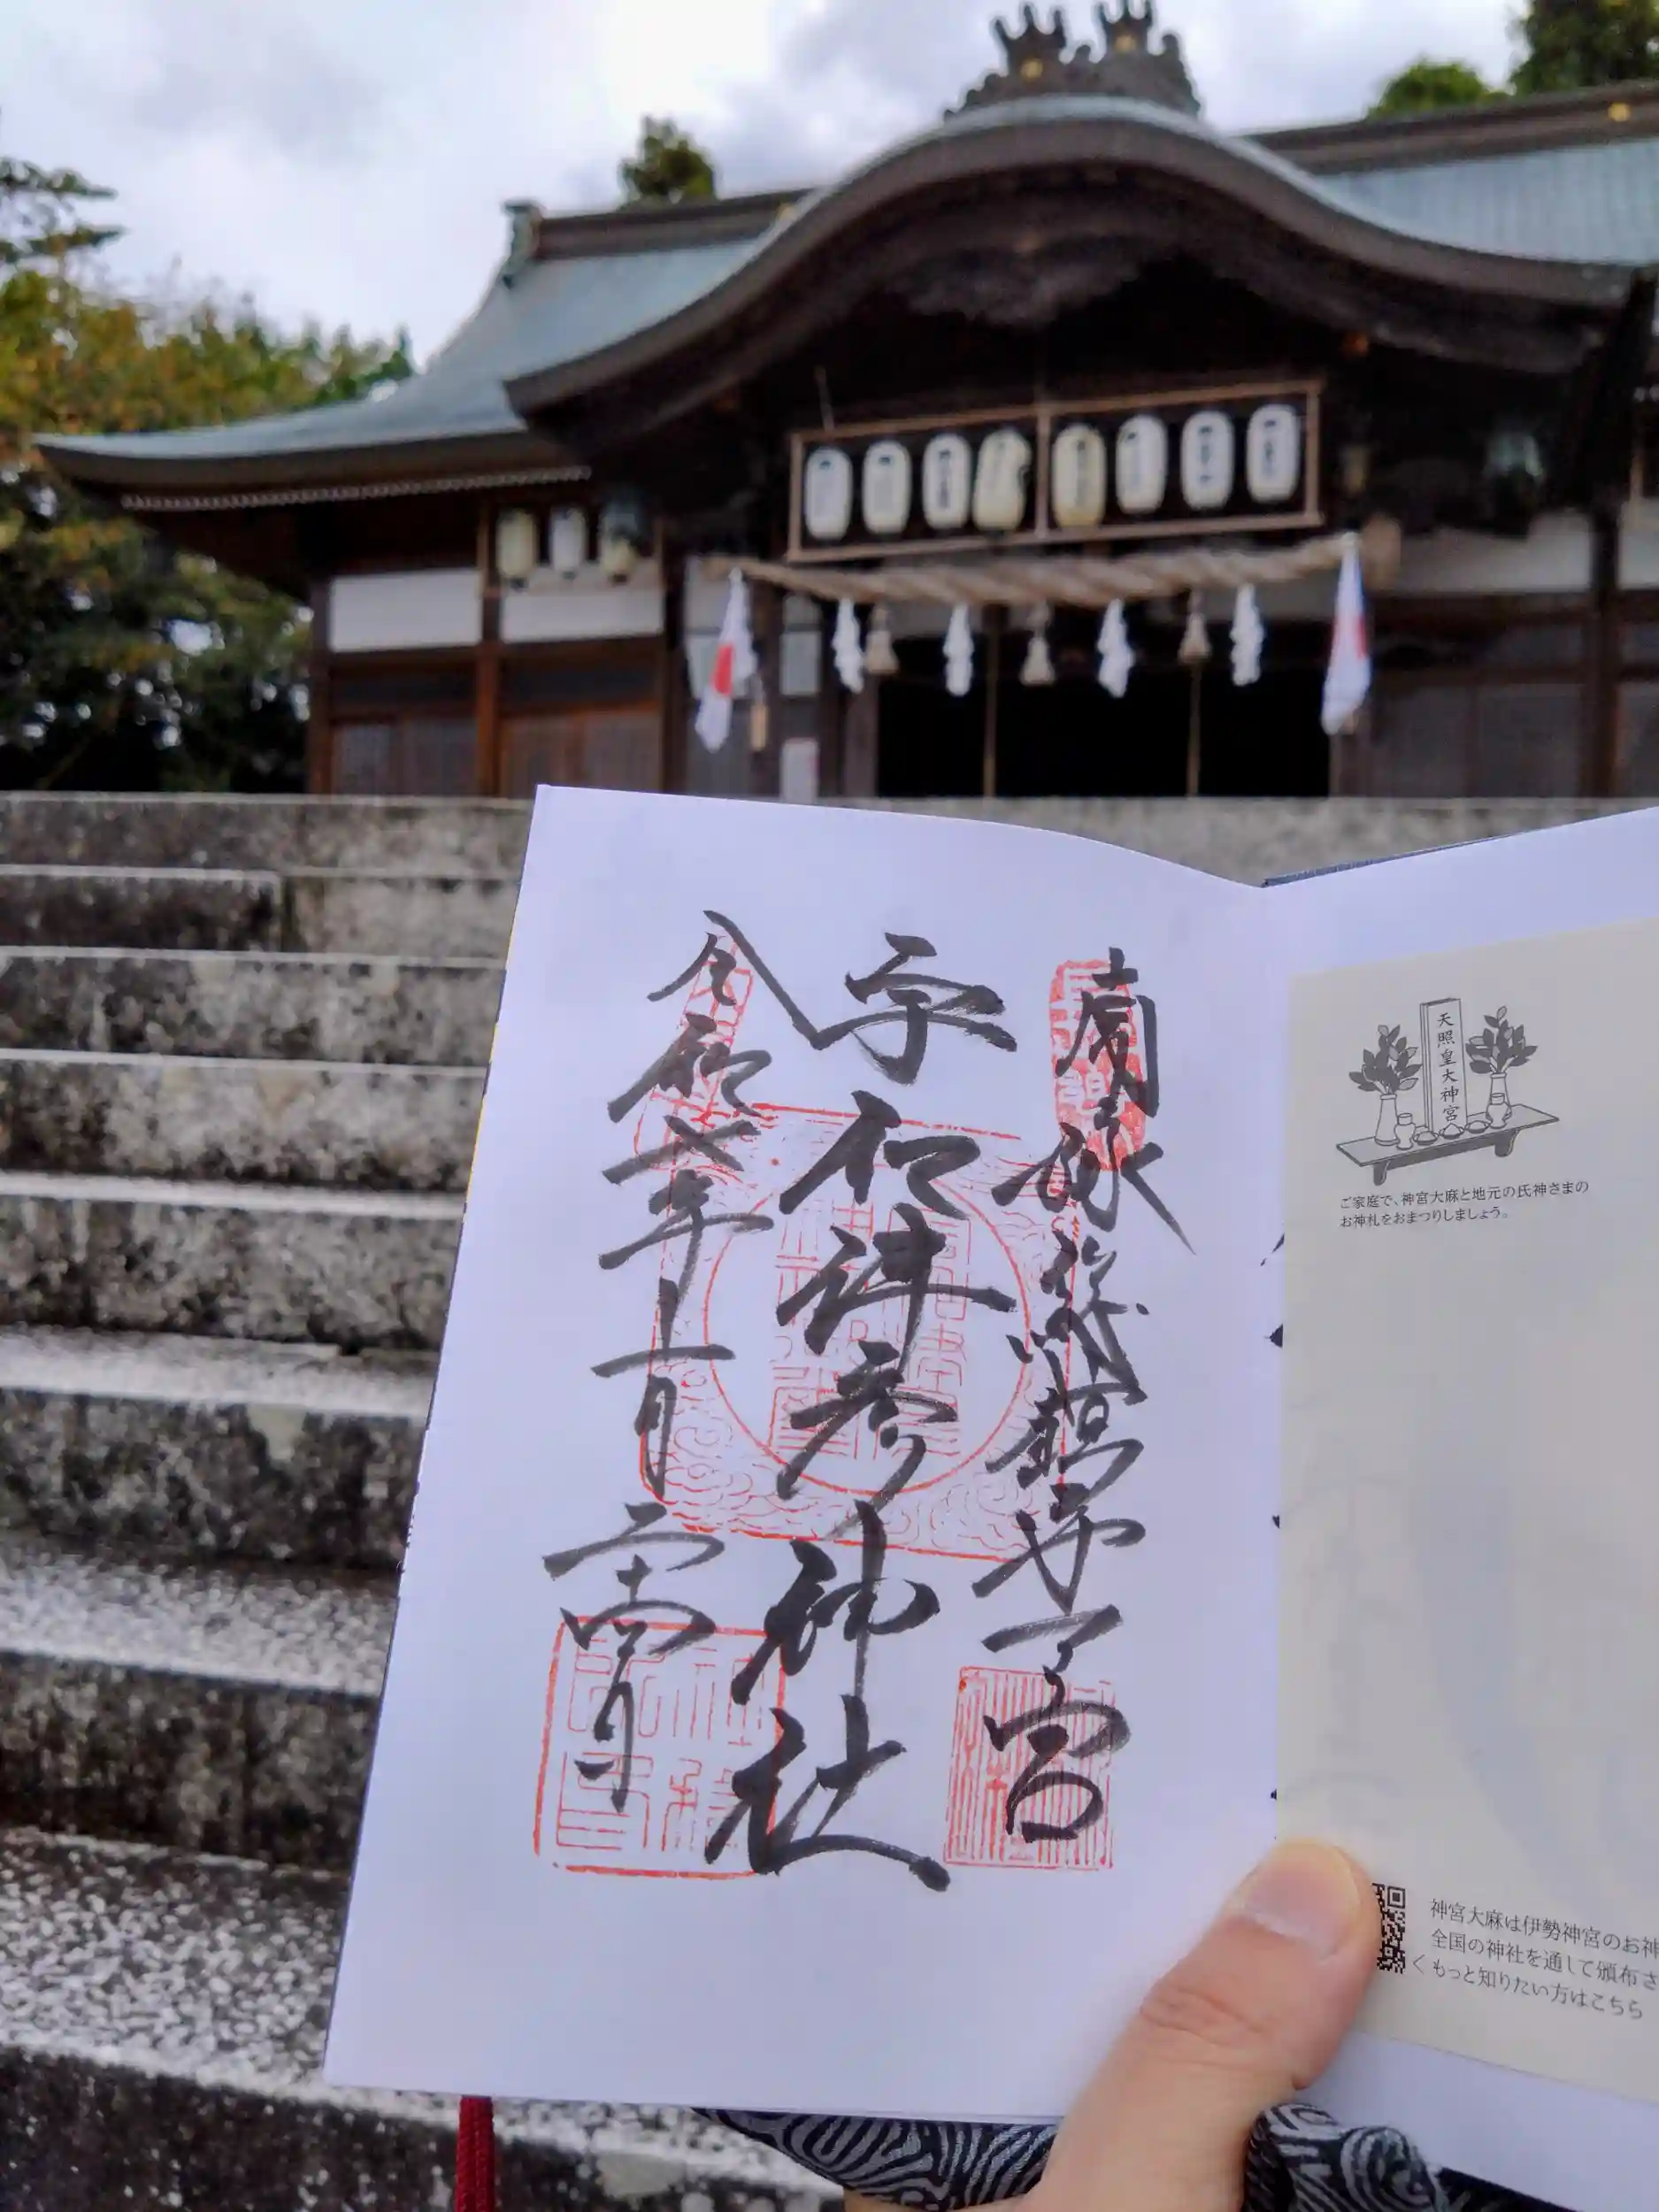 天照皇大神宮
ご家庭で、神宮大麻と地元の氏神さまの
お神札をおまつりしましょう。
神宮大麻は伊勢神宮のお神
全国の神社を通して頒布さ
くもっと知りたい方はこちら
南豫 鎮守一宮
宇和津彦神社
令和七年十月